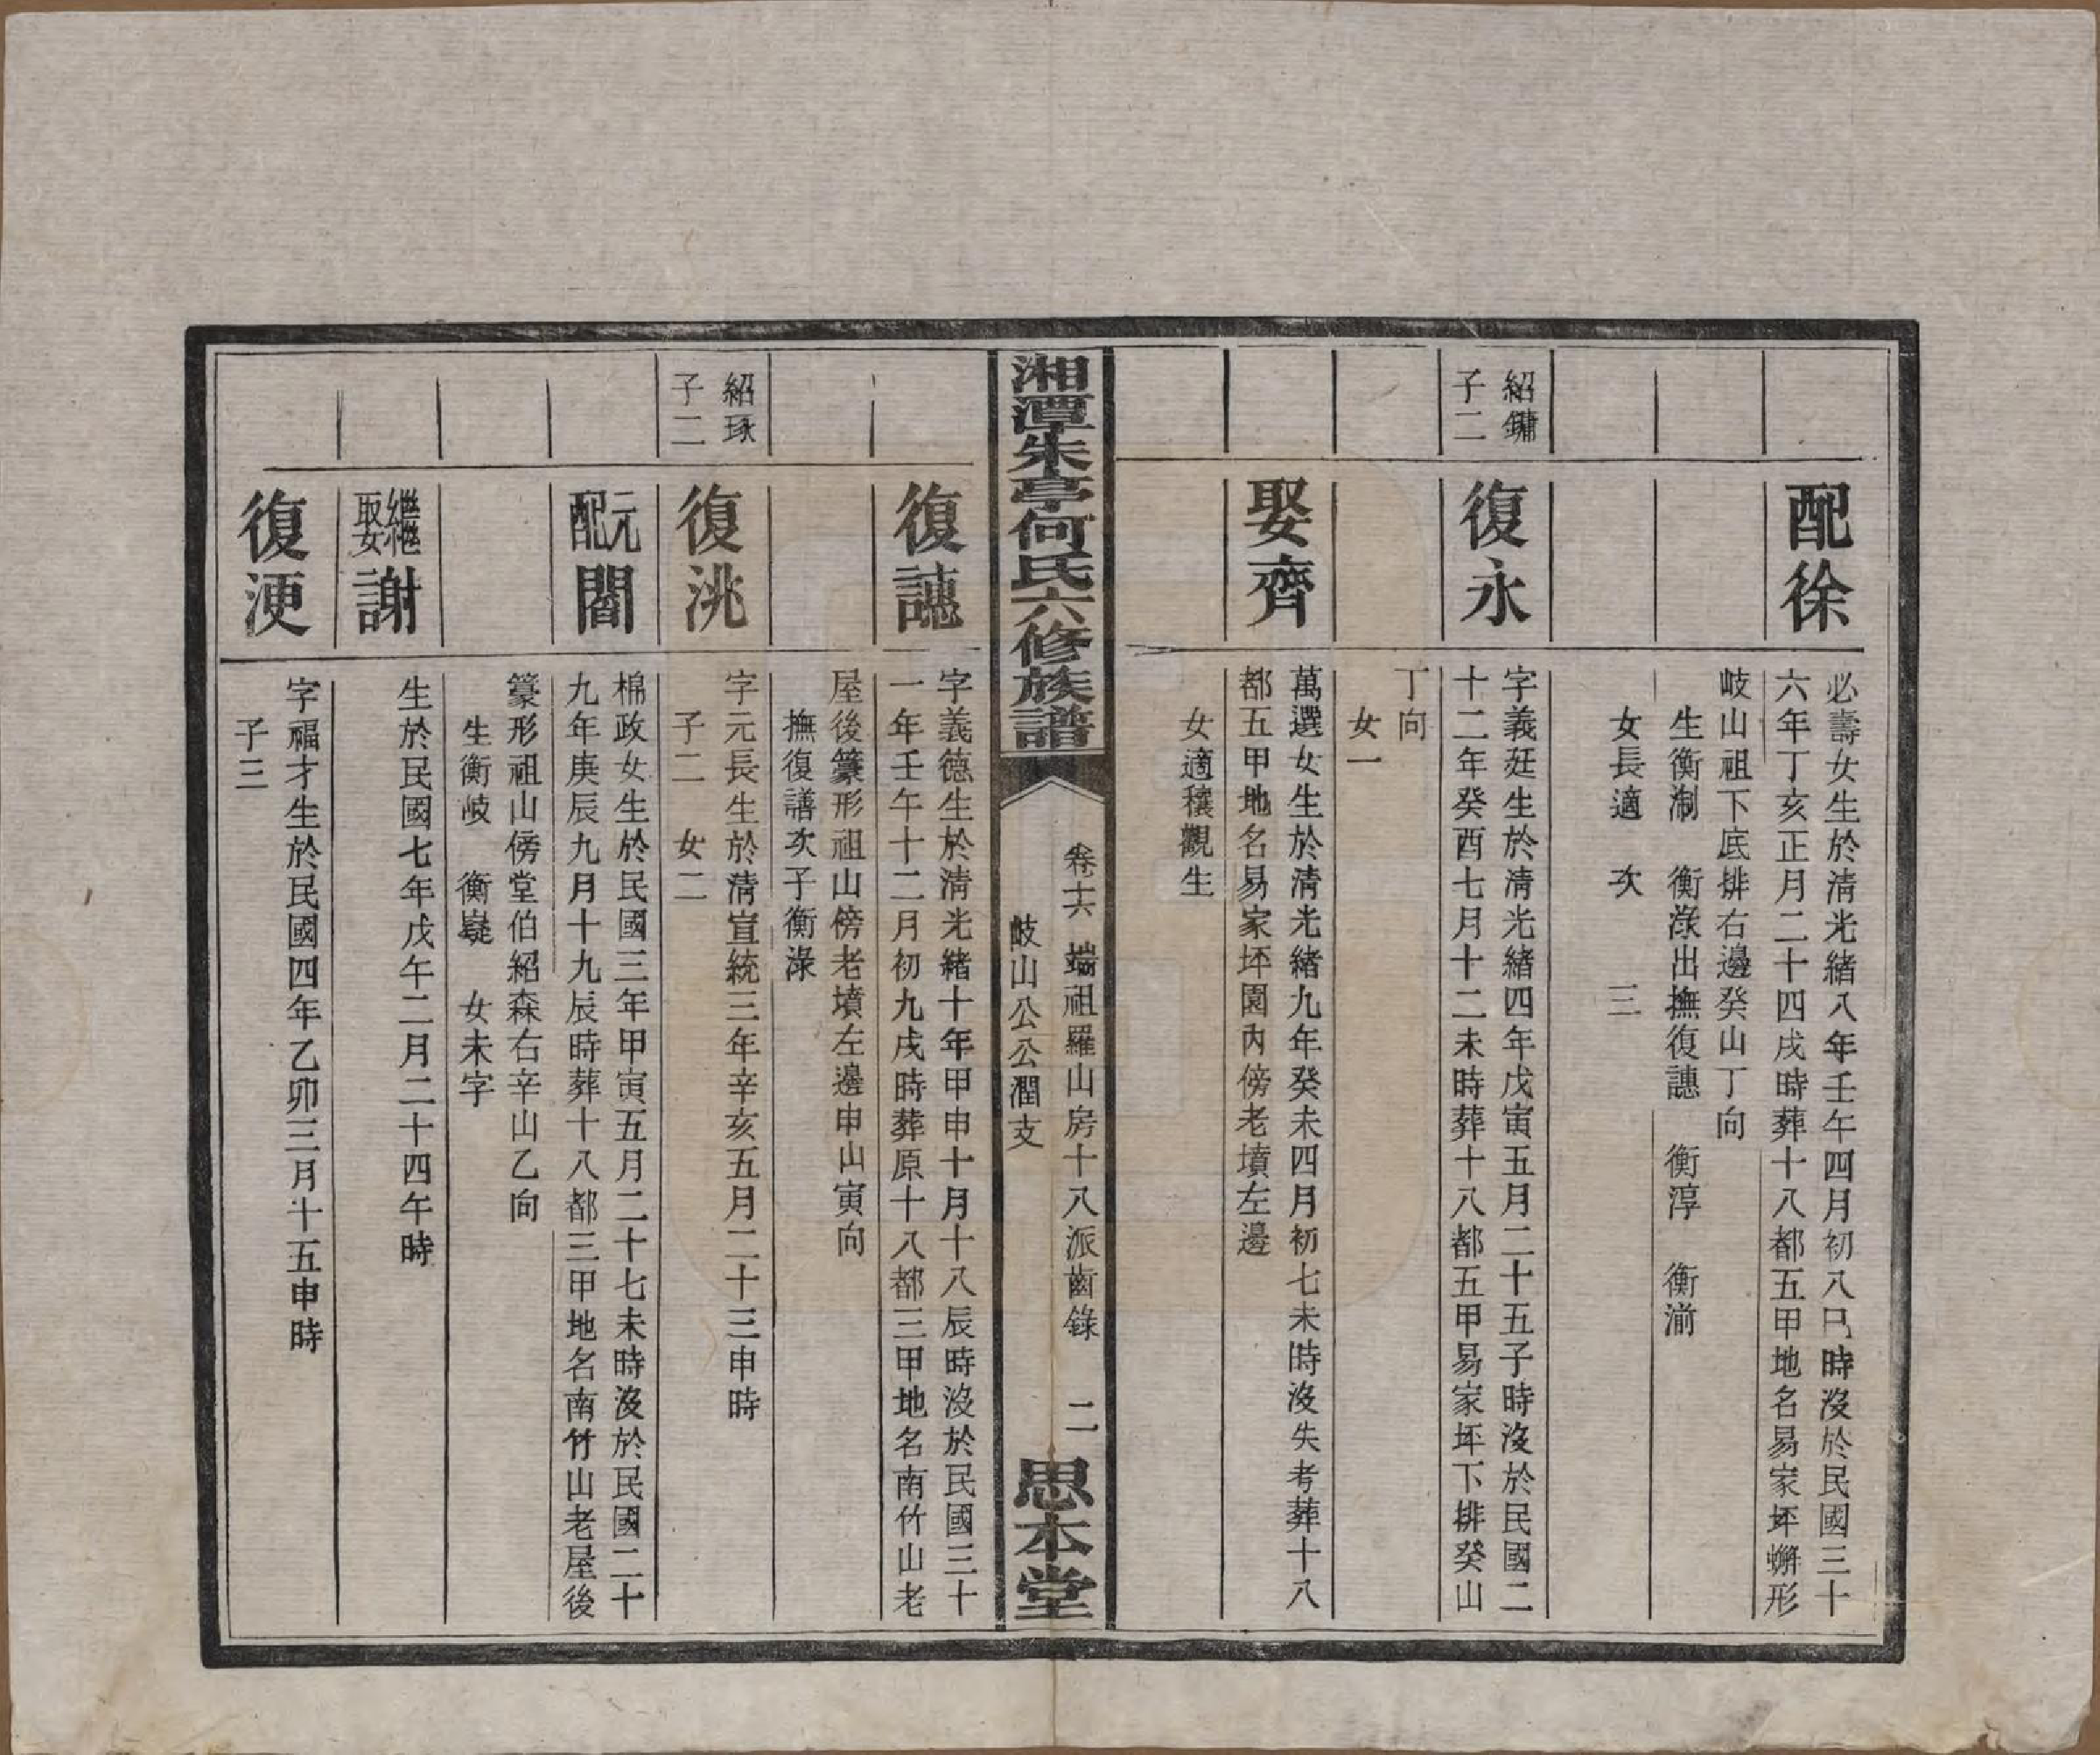 配徐
必壽女生於清光緒八年壬午四月初八巳時沒於民國三十
六年丁亥正月二十四戌時葬十八都五甲地名易家坪蠏形
岐山祖下底排右邊癸山丁向
生衡淛 衡淥出撫復譓 衡淳 衡湔
女長適 次 三
紹鏽
子二
復永
字義廷生於清光緒四年戊寅五月二十五子時沒於民國二
十二年癸酉七月十二未時葬十八都五甲易家坪下排癸山
丁向
女一
娶齊
萬選女生於清光緒九年癸未四月初七未時沒失考葬十八
都五甲地名易家坪園內傍老墳左邊
女適穰觀生
湘潭朱亭何氏六修族譜
卷十六 端祖羅山房十八派齒錄 二
岐山公公潤支
思本堂
復譓
字義德生於清光緒十年甲申十月十八辰時沒於民國三十
一年壬午十二月初九戌時葬原十八都三甲地名南竹山老
屋後籇形祖山傍老墳左邊申山寅向
撫復譜次子衡淥
紹琢
子二
復洮
字元長生於清宣統三年辛亥五月二十三申時
子二 女二
元配閻
棉政女生於民國三年甲寅五月二十七未時沒於民國二十
九年庚辰九月十九辰時葬十八都三甲地名南竹山老屋後
籇形祖山傍堂伯紹森右辛山乙向
生衡岐 衡嶷 女未字
繼娶謝
生於民國七年戊午二月二十四午時
復浭
字福才生於民國四年乙卯三月十五申時
子三